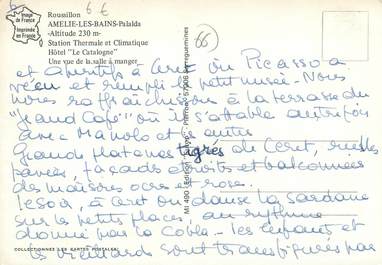 6 6€
de France
Imprimée
en France
Roussillon
AMELIE-LES-BAINS-Palalda
-Altitude 230 m-
Station Thermale et Climatique
Hôtel "Le Catalogne"
Une vue de la salle à manger
66
et apéritif à Ceret où Picasso a
vécu et rempli le petit musée. Nous
nous rafraîchissons à la terrasse du
"Grand Café" où il s'attable autrefois
avec Manolo et les autres
Grands platanes tigrés de Ceret, ruelles
pavées, façades étroites et balconnées
des maisons ocre et rose.
Ce soir, à Ceret on danse la sardane
sur les petites places, au rythme
donné par la Cobla - les enfants et
les vieillards sont transfigurés par
MI 490 - Edition
57206 Sarreguemines
COLLECTIONNEZ LES CARTES POSTALES